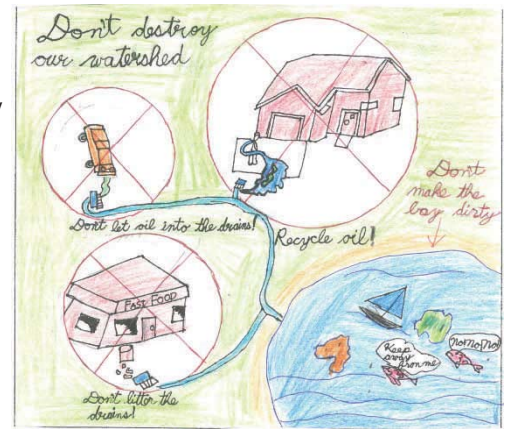 Don't destroy
our watershed
Don't let oil into the drains!
Recycle oil!
Dont
make the
bay dirty
FAST FOOD
Don't litter the
drains!
Keep
away
from me
nomono!